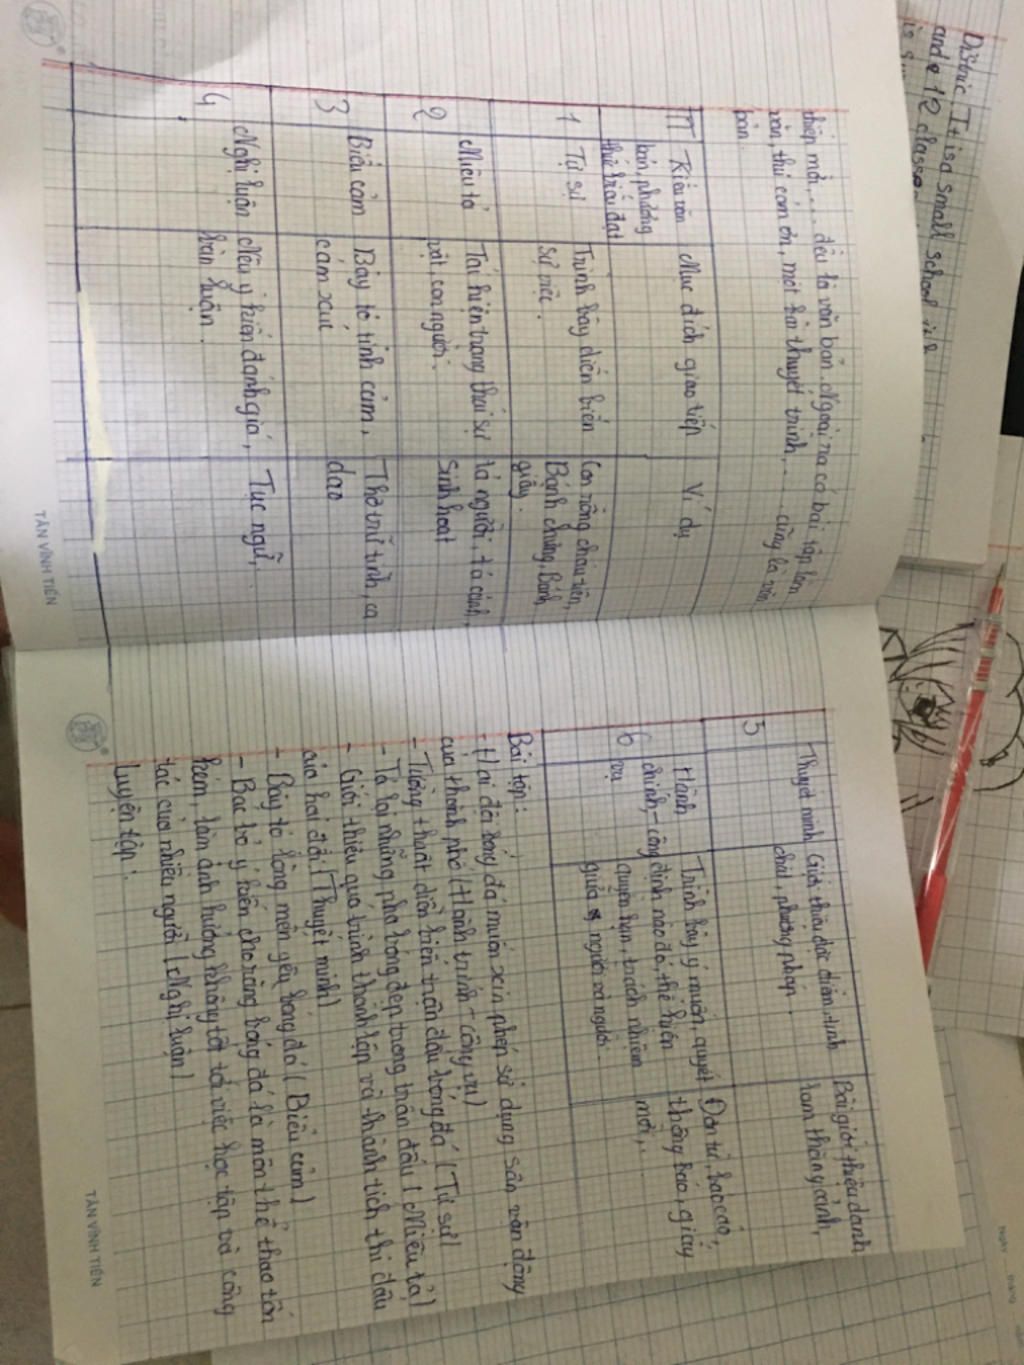 District. It is a small school with
and 12 classe
thiệp mời,.... đều là văn bản. Ngoài ra có bài tập làm
văn, thư cảm ơn, một bài thuyết trình,... cũng là văn
bản.
TT Kiểu văn bản, phương thức biểu đạt Mục đích giao tiếp Ví dụ
1 Tự sự Trình bày diễn biến Con rồng cháu tiên,
sự việc. Bánh chưng, Bánh
giầy.
2 Miêu tả Tái hiện trạng thái sự tả người, tả cảnh,
vật, con người. Sinh hoạt
3 Biểu cảm Bày tỏ tình cảm, Thơ trữ tình, ca
cảm xúc dao
4 Nghị luận Nêu ý kiến đánh giá, Tục ngữ,..
bàn luận.
TÂN VĨNH TIẾN
5 Thuyết minh Giới thiệu đặc điểm, tính Bài giới thiệu danh
chất, phương pháp. lam thắng cảnh,
6 Hành Trình bày ý muốn, quyết Đơn từ, báo cáo,
chính - công định nào đó, thể hiện thông báo, giấy
vụ quyền hạn, trách nhiệm mời,...
giữa người và người.
Bài tập:
- Hai đội bóng đá muốn xin phép sử dụng sân vận động
của thành phố (Hành trính - công vụ)
- Tường thuật diễn biến trận đấu bóng đá (Tự sự)
- Tả lại những pha bóng đẹp trong trận đấu (Miêu tả)
- Giới thiệu quá trình thành lập và thành tích thi đấu
của hai đội (Thuyết minh)
- Bày tỏ lòng mến yêu bóng đá (Biểu cảm)
- Bác bỏ ý kiến cho rằng bóng đá là môn thể thao tốn
kém, làm ảnh hưởng không tốt tới việc học tập và công
tác của nhiều người (Nghị luận)
Luyện tập:
TÂN VĨNH TIẾN
Ngày
tháng